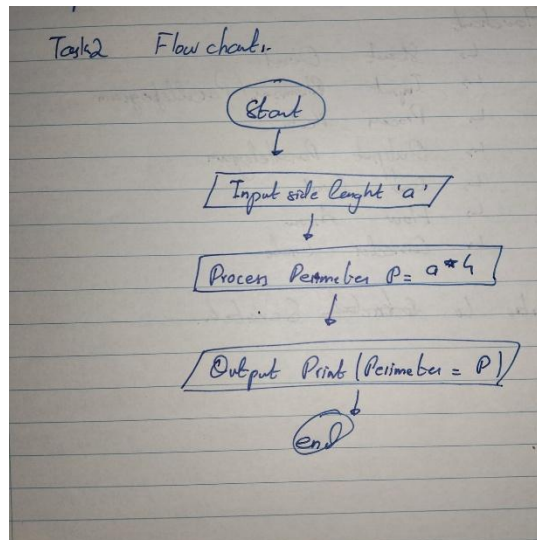 Task2 Flow chart:-
Start
Input side lenght 'a'
Process Perimeter P = a * 4
Output Print (Perimeter = P)
end